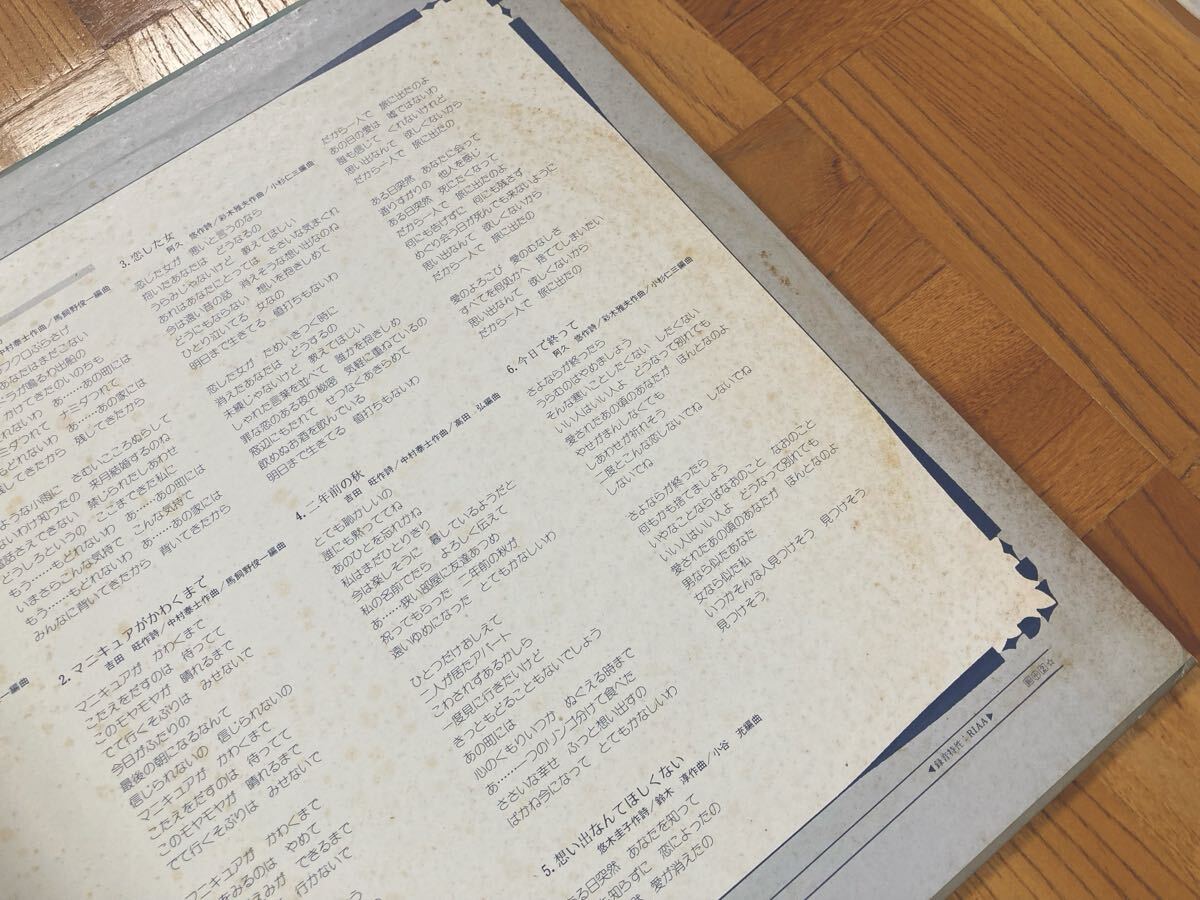 中村泰士作曲／馬飼野俊一編曲
あ……あの町には
ナミダつれて
もどれないわ あ……あの家には
残してきたから
さむいこころぬらして
来月結婚するのね
禁じられたしあわせ
ここまできた私に
もう……もどれないわ あ……あの町には
いまさらこんな気持で こんな気持で
もう……もどれないわ あ……あの家には
みんなに背いてきたから 背いてきたから
一編曲
2. マニキュアがかわくまで
吉田 旺作詩／中村泰士作曲／馬飼野俊一編曲
マニキュアが かわくまで
こたえをだすのは 待ってて
このモヤモヤが 晴れるまで
でて行くそぶりは みせないで
今日がふたりの
最後の朝になるなんて
信じられないの 信じられないの
マニキュアが かわくまで
こたえをだすのは 待ってて
このモヤモヤが 晴れるまで
でて行くそぶりは みせないで
マニキュアが かわくまで
をみるのは やめて
えみが できるまで
行かないで
3. 恋した女
阿久 悠作詩／彩木雅夫作曲／小杉仁三編曲
恋した女が 悪いと言うのなら
抱いたあなたは どうなるの
うらみじゃないけど 教えてほしい
あれはあなたにとっては ささいな気まぐれ
今は遠い昔の話 消えそうな想い出なのね
どうにもならない 想いを抱きしめて
ひとり泣いてる 女なの
明日まで生きてる 値打ちもないわ
恋した女が ためいきつく時に
消えたあなたは どうするの
未練じゃないけど 教えてほしい
しゃれた言葉を並べて 誰かを抱きしめ
罪な恋のある夜の秘密 気軽に重ねているの
窓辺にもたれて せつなくあきらめて
飲めぬお酒を飲んでいる
明日まで生きてる 値打ちもないわ
4. 二年前の秋
吉田 旺作詩／中村泰士作曲／高田 弘編曲
とても恥かしいの
誰にも黙っててね
あのひとを忘れかね
私はまだひとりきり
今は楽しそうに 暮しているようだと
私の名前でたら よろしく伝えて
あ……狭い部屋に友達あつめ
祝ってもらった 二年前の秋が
遠いゆめになった とてもかなしいわ
ひとつだけおしえて
二人が居たアパート
こわされずあるかしら
一度見に行きたいけど
きっともどることもないでしょう
あの町には
心のくもりいつか ぬぐえる時まで
あ……一つのリンゴ分けて食べた
ささいな幸せ ふっと想い出すの
ばかね今になって とてもかなしいわ
5. 想い出なんてほしくない
悠木圭子作詩／鈴木 淳作曲／小谷 充編曲
ある日突然 あなたを知って
も知らずに 恋によったの
愛が消えたの
だから一人で 旅に出たのよ
あの日の愛は 嘘ではないわ
誰も信じて くれないけれど
思い出なんて 欲しくないから
だから一人で 旅に出たの
ある日突然 あなたに会って
通りすがりの 他人を感じ
ある日突然 死にたくなって
だから一人で 旅に出たのよ
何にも告げずに 何にも残さず
めぐり会う日が死んでも来ないように
思い出なんて 欲しくないから
だから一人で 旅に出たの
愛のよろこび 愛のむなしさ
すべてを何処かへ 捨ててしまいたい
思い出なんて 欲しくないから
だから一人で 旅に出たの
6. 今日で終って
阿久 悠作詩／彩木雅夫作曲／小杉仁三編曲
さよならが終ったら
うらむのはやめましょう
そんな寒いことしたくない したくない
いい人はいい人よ どうなって別れても
愛されたあの頃のあなたが ほんとなのよ
やせがまんしなくても
しあわせが祈れそう
二度とこんな恋しないでね しないでね
しないでね
さよならが終ったら
何もかも捨てましょう
いやなことならばなおのこと なおのこと
いい人はいい人よ どうなって別れても
愛されたあの頃のあなたが ほんとなのよ
男なら似たあなた
女なら似た私
いつかそんな人見つけそう 見つけそう
見つけそう
◀録音特性：RIAA▶